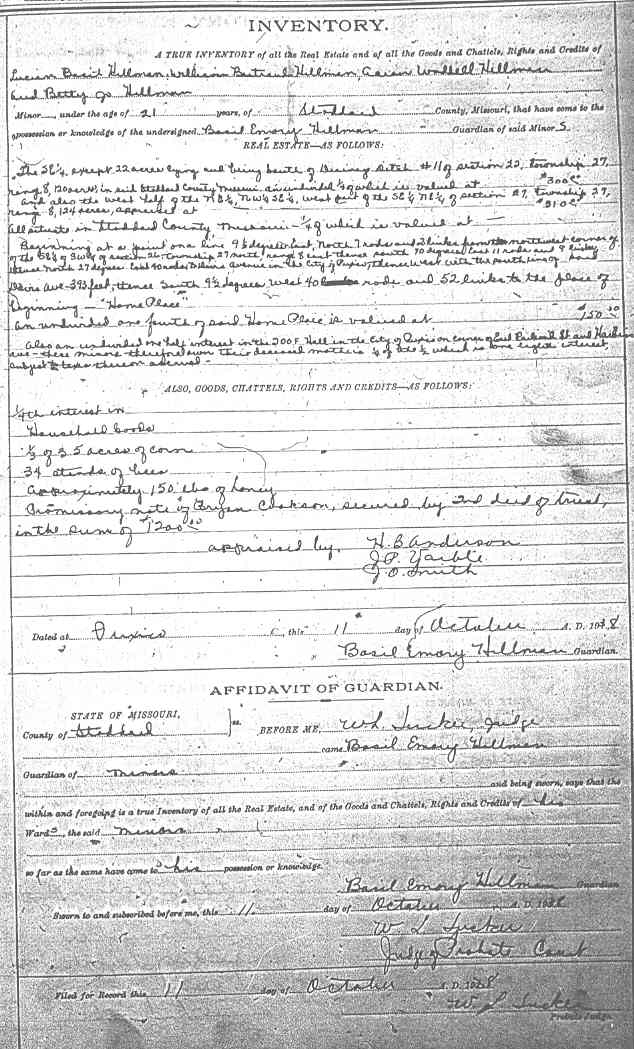 INVENTORY.
A TRUE INVENTORY of all the Real Estate and of all the Goods and Chattels, Rights and Credits of
Lucian Basil Hillman, William Bertrand Hillman, Aaron Wendell Hillman
and Betty Jo Hillman
Minor, under the age of 21 years, of Stoddard County, Missouri, that have come to the
possession or knowledge of the undersigned Basil Emory Hillman Guardian of said Minors.
REAL ESTATE—AS FOLLOWS:
The SE¼, except 22 acres lying and being south of Drainage Ditch #11 of section 22, township 27,
range 8, 120 acres in said Stoddard County Missouri an undivided ¼ of which is valued at $300.00
And also the West half of the NE¼, NW¼ SE¼, West part of the SE¼ NE¼ of section 27, township 27,
range 8, 124 acres, appraised at $310.00
All situate in Stoddard County, Missouri - ¼ of which is valued at —
Beginning at a point on a line 9½ degrees West, North 7 rods and 3 links from the northwest corner of
of the SE¼ of SW¼ of section 26 township 27 north, range 8 east thence south 70 degrees East 11 rods and 9 links
thence North 27 degrees East 40 rods Avenue in the City of Puxico, thence West with the south line of said
Ave 393 feet, thence South 9½ degrees West 40 rods and 52 links to the place of
beginning — "Home Place"
An undivided one fourth of said Home Place is valued at $150.00
Also an undivided one half interest in the IOOF Hall in the City of Puxico on corner of East St and
ave - these minors therefore own their deceased mother's ¼ of the ½ which is one eighth interest,
subject to taxes thereon accrued -
ALSO, GOODS, CHATTELS, RIGHTS AND CREDITS—AS FOLLOWS:
¼th interest in
Household Goods
⅓ of 35 acres of corn
34 stands of bees
approximately 150 lbs of honey
Promissory note of Bryan Cookson, secured by 2nd deed of trust,
in the sum of $1200.00
appraised by, H. B Anderson
J. P. Yaible
J. O. Smith
Dated at Puxico, this 11 day of October A. D. 1928
Basil Emory Hillman Guardian.
AFFIDAVIT OF GUARDIAN.
STATE OF MISSOURI,
County of Stoddard } ss. BEFORE ME, W. L. Tucker, Judge
came Basil Emory Hillman
Guardian of minors
and being sworn, says that the
within and foregoing is a true Inventory of all the Real Estate, and of the Goods and Chattels, Rights and Credits of his
Wards, the said minors
so far as the same have come to his possession or knowledge.
Basil Emory Hillman Guardian
Sworn to and subscribed before me, this 11. day of October A. D. 1928
W. L. Tucker
Judge of Probate Court
Filed for Record this 11 day of October A. D. 1928
W. L. Tucker
Probate Judge.